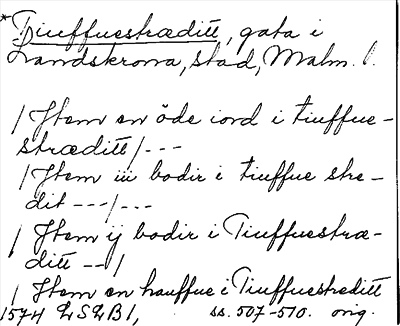 *Tiuffuestræditt, gata i
Landskrona, stad, Malm. l.
/ Jtem en öde iord i tiuffue-
stræditt /---
/ Jtem iii bodir i tiuffue stre-
dit ---/---
/ Jtem ij bodir i Tiuffuestræ-
ditt --/
/ Jtem en hauffue i Tiuffuestreditt
1574 LSLB1, ss. 507-510. orig.